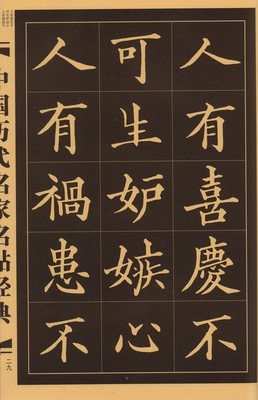 人有喜慶不
可生妒嫉心
人有禍患不
中国历代名家名帖经典
二九